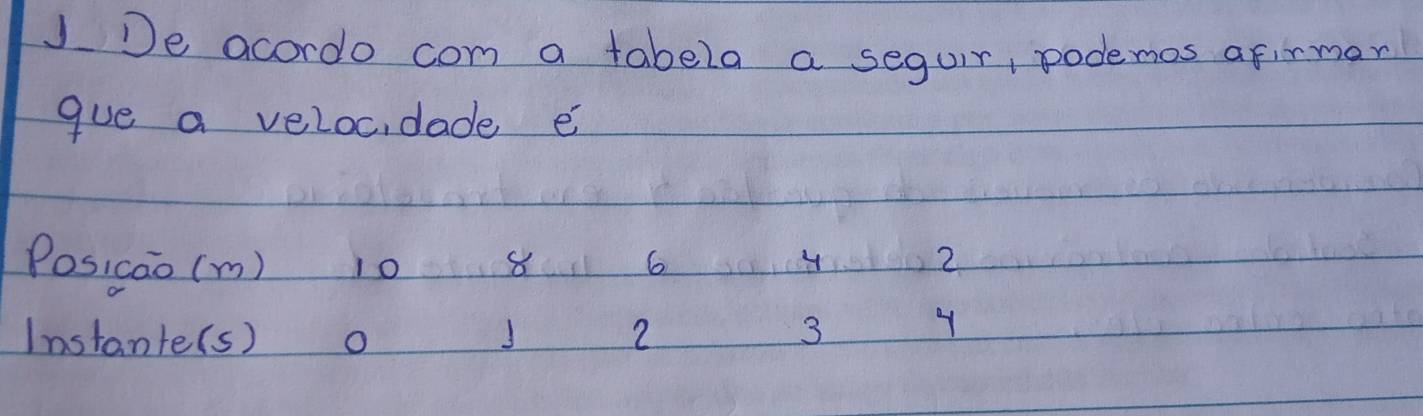 1_ De acordo com a tabela a seguir, podemos afirmar
que a velocidade é
Posição (m) 10 8 6 4 2
Instante(s) 0 1 2 3 4